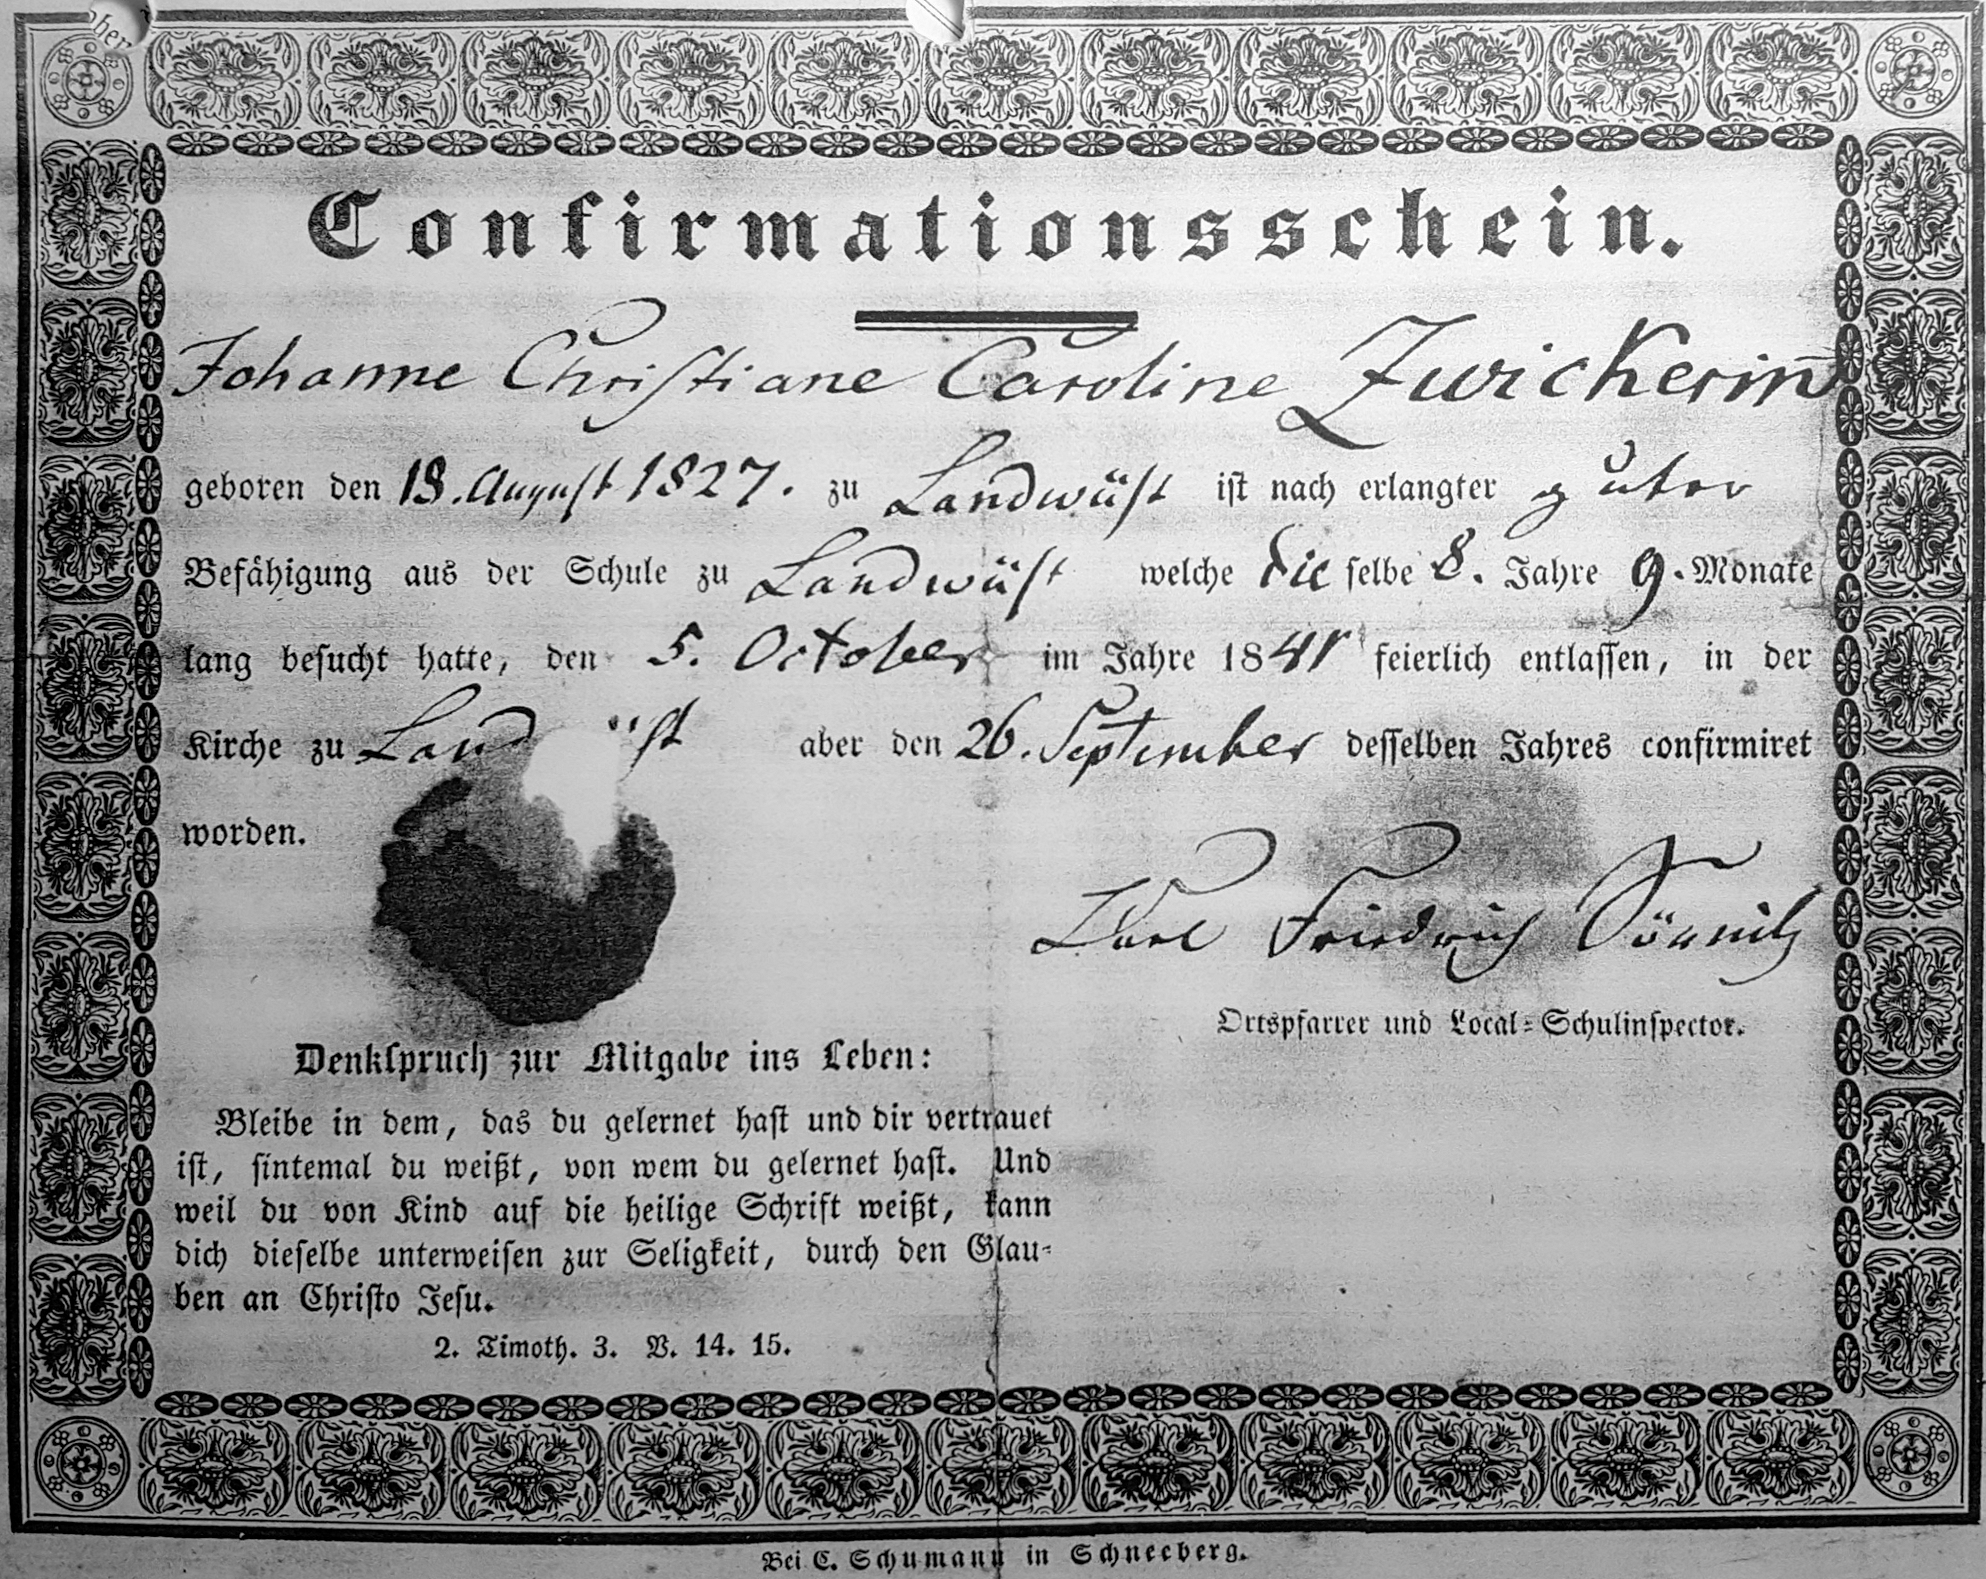 Confirmationsschein.
Johanne Christiane Caroline Zwickerin
geboren den 18. August 1827. zu Landwüst ist nach erlangter guter
Befähigung aus der Schule zu Landwüst welche dieselbe 8. Jahre 9. Monate
lang besucht hatte, den 5. October im Jahre 1841 feierlich entlassen, in der
Kirche zu Land üst aber den 26. September desselben Jahres confirmiret
worden.
Karl Friedrich
Ortspfarrer und Local-Schulinspector.
Denkspruch zur Mitgabe ins Leben:
Bleibe in dem, das du gelernet hast und dir vertrauet
ist, sintemal du weißt, von wem du gelernet hast. Und
weil du von Kind auf die heilige Schrift weißt, kann
dich dieselbe unterweisen zur Seligkeit, durch den Glau-
ben an Christo Jesu.
2. Timoth. 3. V. 14. 15.
Bei C. Schumann in Schneeberg.